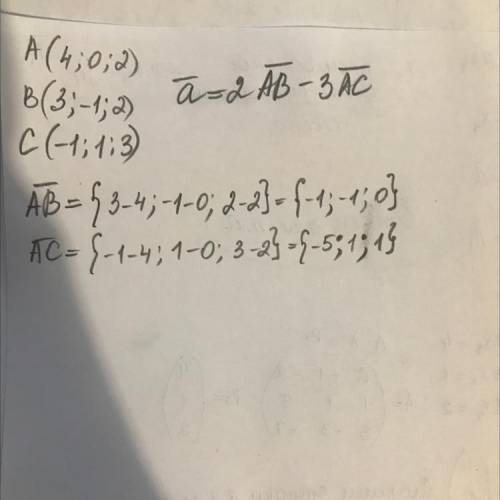 A(4;0;2)
B(3;-1;2)
C(-1;1;3)
a̅=2A̅B̅-3A̅C̅
A̅B̅={3-4;-1-0;2-2}={-1;-1;0}
A̅C̅={-1-4;1-0;3-2}={-5;1;1}